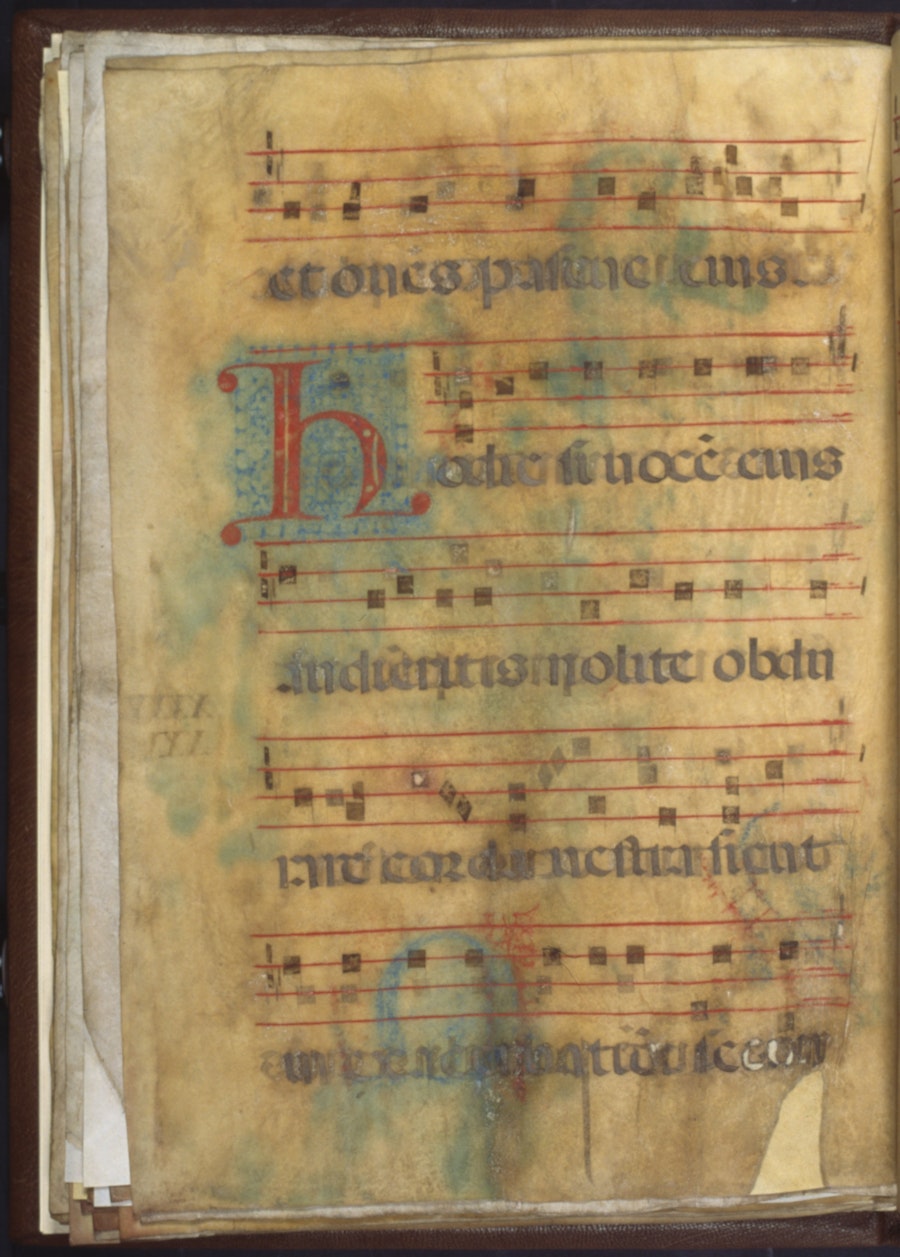 et oues pascue eius
hodie si uocē eius
audieritis nolite obdu
rare corda uestra sicut
in